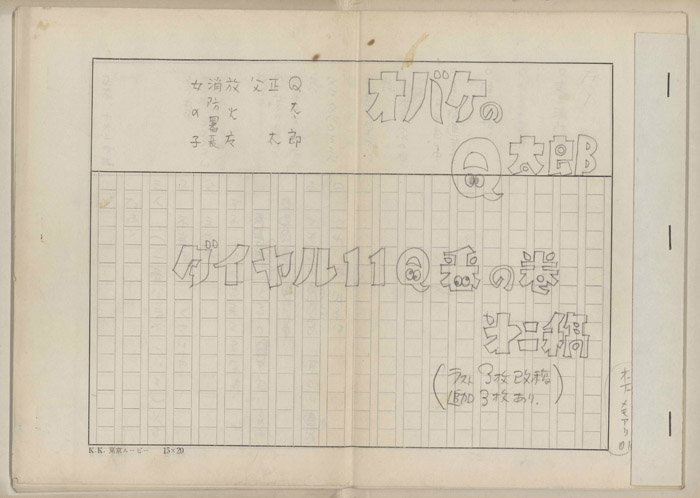 オバケの
Q太郎
Q太郎
正太
父
放火友
消防署長
女の子
ダイヤル11Q番の巻
オ二稿
(ラスト3枚改稿
追加3枚あり.)
K.K. 東京ムービー 15×20